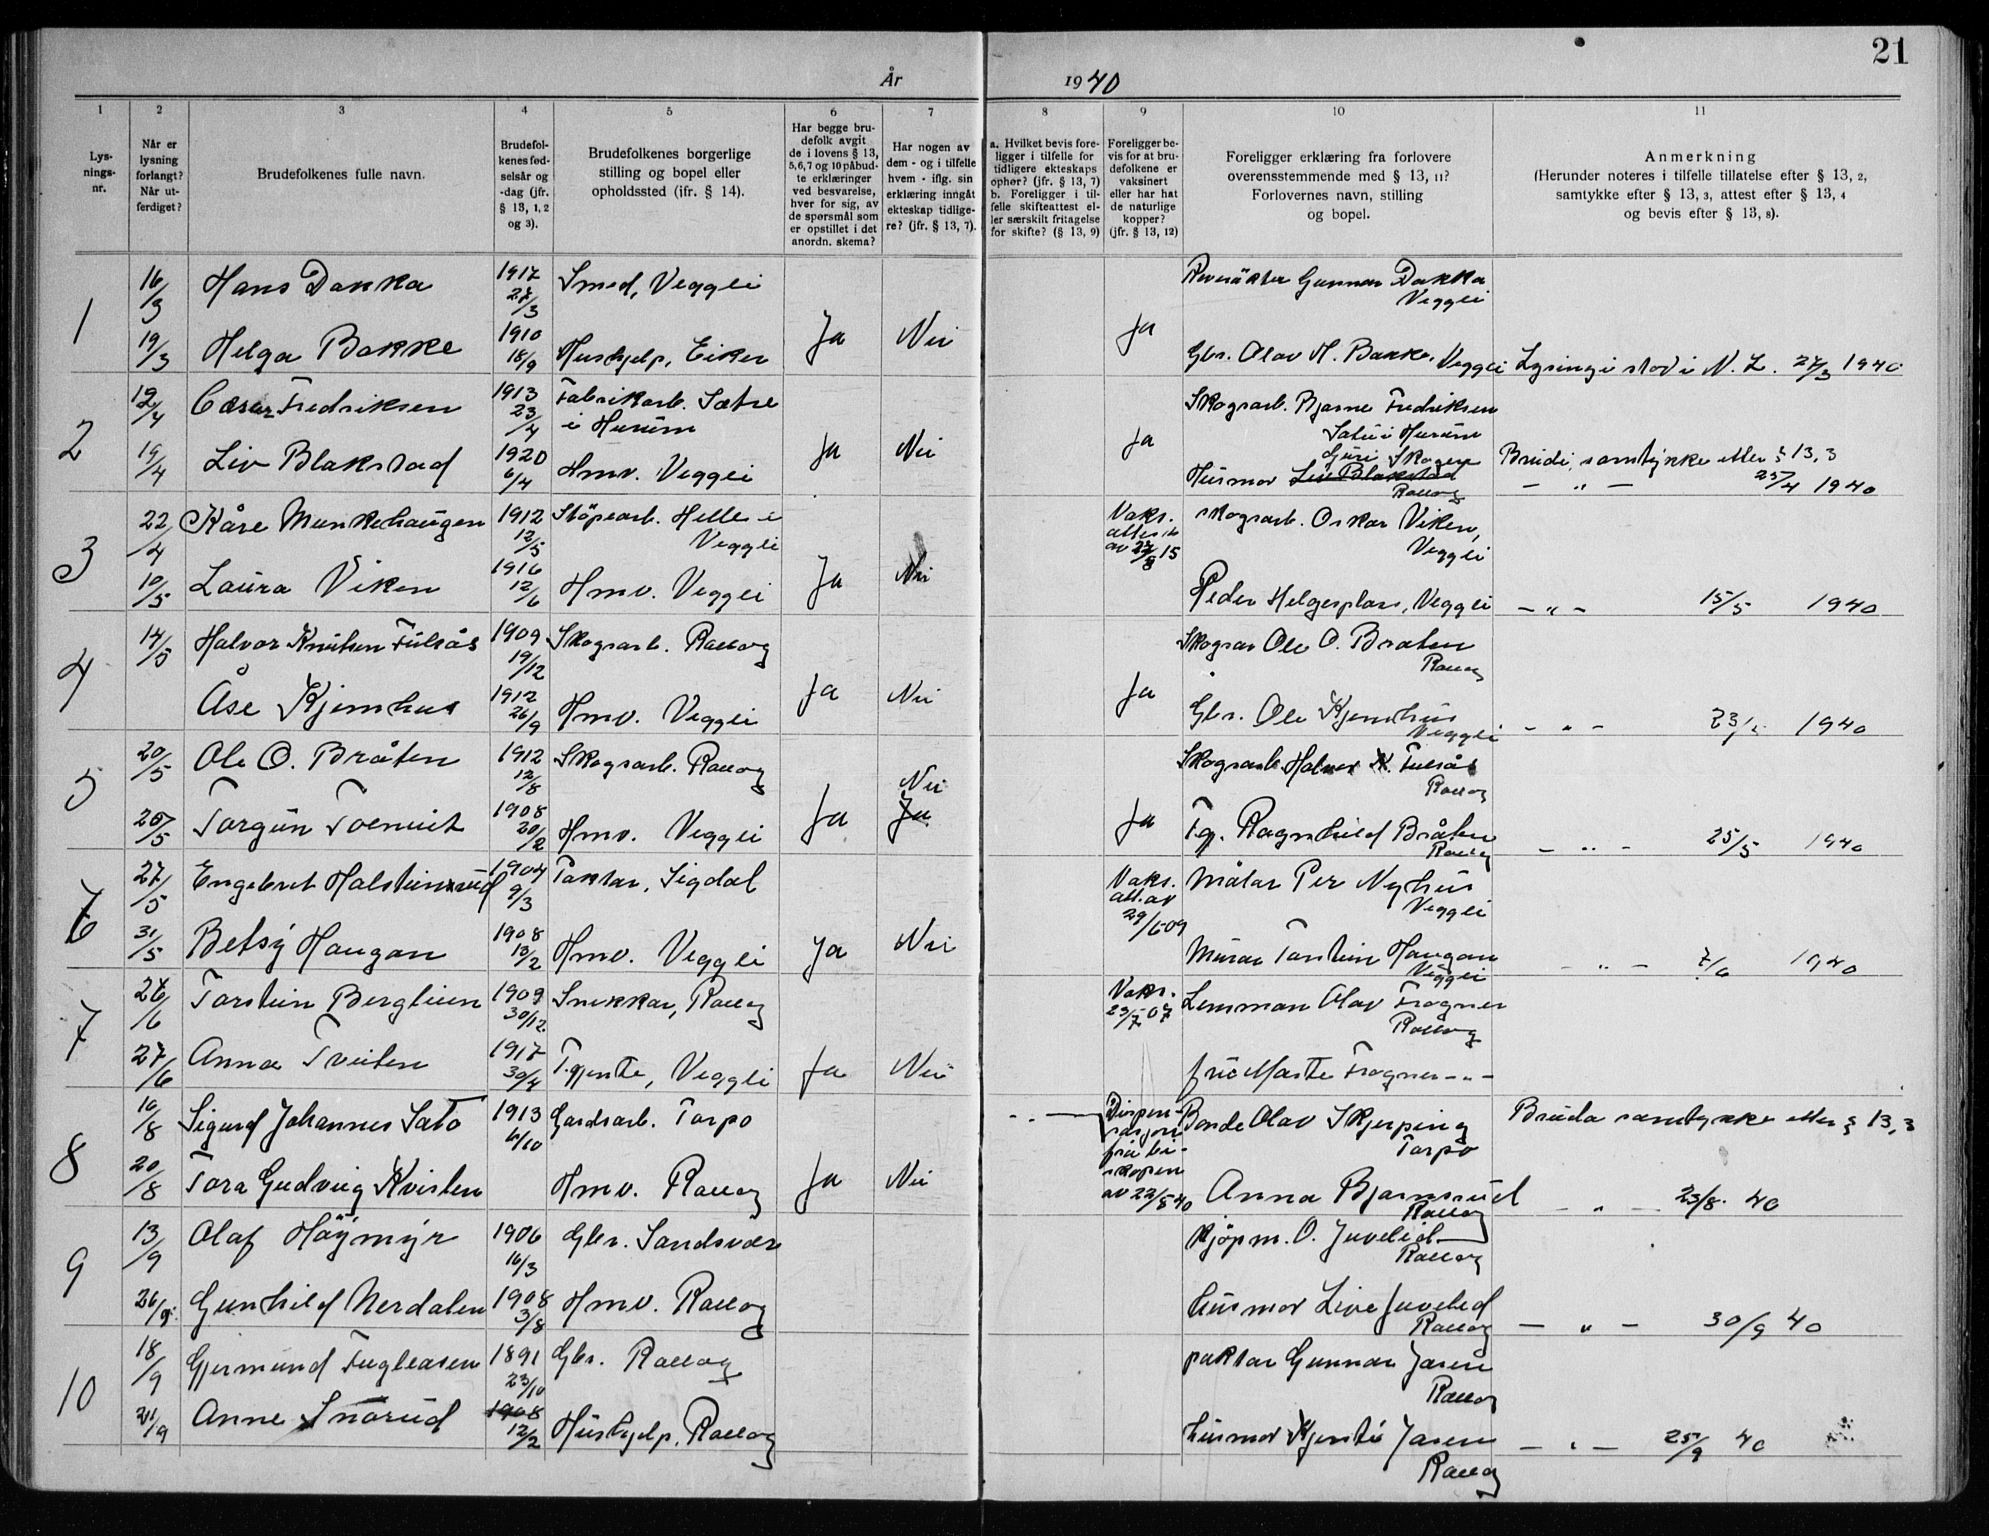 21
År 1940
1
Lys-
nings-
nr.
2
Når er
lysning
forlangt?
Når ut-
ferdiget?
3
Brudefolkenes fulle navn.
4
Brudefol-
kenes fød-
selsår og
-dag (jfr.
§ 13, 1, 2
og 3).
5
Brudefolkenes borgerlige
stilling og bopel eller
opholdssted (jfr. § 14).
6
Har begge bru-
defolk avgit
de i lovens § 13,
5,6,7 og 10 påbud-
te erklæringer
ved besvarelse,
hver for sig, av
de spørsmål som
er opstillet i det
anordn. skema?
7
Har nogen av
dem - og i tilfelle
hvem - iflg. sin
erklæring inngått
ekteskap tidlige-
re? (jfr. § 13, 7).
8
a. Hvilket bevis fore-
ligger i tilfelle for
tidligere ekteskaps
ophør? (jfr. § 13, 7)
b. Foreligger i til-
felle skifteattest el-
ler særskilt fritagelse
for skifte? (§ 13, 9)
9
Foreligger be-
vis for at bru-
defolkene er
vaksinert
eller har hat
de naturlige
kopper?
(jfr. § 13, 12)
10
Foreligger erklæring fra forlovere
overensstemmende med § 13, 11?
Forlovernes navn, stilling
og bopel.
11
Anmerkning
(Herunder noteres i tilfelle tillatelse efter § 13, 2,
samtykke efter § 13, 3, attest efter § 13, 4
og bevis efter § 13, 8).
1 16/3 Hans Dakka 1917 27/3 Smed, Veggli Gunnar Dakka
Veggli
19/3 Helga Bakke 1910 18/9 Hushjelp, Eiker Ja Nei Ja Gbr. Olav H. Bakke, Veggli Lysning i stod i N. L. 27/3 1940
2 19/4 Cæsar Fredriksen 1913 23/4 Fabrikarb. Sætre
i Hurum Skogsarb. Bjarne Fredriksen
Sætre i Hurum
19/4 Liv Blakstad 1920 6/4 Hmv. Veggli Ja Nei Ja Husmor Liv Blakstad
Guri Skogen
Rollag Brudi, samtykke etter § 13, 3
- " - 25/4 1940
3 22/4 Kåre Munkehaugen 1912 12/5 Støpearb. Helle i
Veggli Vaks.
attest
av 27/8 15 Skogsarb. Oskar Viken,
Veggli
10/5 Laura Viken 1916 12/6 Hmv. Veggli Ja Nei Peder Helgesplass, Veggli - " - 15/5 1940
4 14/5 Halvor Knutsen Fulsås 1909 19/12 Skogsarb. Rollag Skogsar Ole O. Bråten
Rollag
Åse Kjemhus 1912 26/9 Hmv. Veggli Ja Nei Ja Gbr. Ole Kjemhus
Veggli - " - 1940
5 20/5 Ole O. Bråten 1912 12/8 Skogsarb. Rollag Skogsarb. Halvor K. Fulsås
Rollag
20/5 Torgun 1908 20/2 Hmv. Veggli Ja Nei
Ja Ja Tgj. Ragnhild Bråten
Rollag - " - 25/5 1940
6 27/5 Engebret Halsteinsrud 1904 9/3 Taktar, Sigdal Vaks.
att. av
29/6 09 Målar Per Nyhus
Veggli
31/5 Betsy Haugan 1908 13/2 Hmv. Veggli Ja Nei Murar Torstein Haugan
Veggli - " - 7/6 1940
7 26/6 Torstein Berglien 1909 30/12 Snekkar, Rollag Vaks.
23/7 07 Lensman Olav Fragner
Rollag
27/6 Anna Tveiten 1917 30/4 T.gjente, Veggli Ja Nei fru Marte Fragner - " -
8 16/8 Sigurd Johannes Sato 1913 6/10 Gardsarb. Torpo Dispen-
sasjon
fra bi-
skopen
av 22/8 40 Bonde Olav Skjerping
Torpo Bruda samtykke etter § 13, 3
20/8 Tora Gudveig Kvisten Hmv. Rollag Ja Nei Anna Bjørnsrud
Rollag - " - 23/8 40
9 13/9 Olaf Høymyr 1906 16/3 Gbr. Sandsvær Kjøpm. O. Juvelid
Rollag
26/9 Gunhild Nerdalen 1908 3/8 Hmv. Rollag husmor Live Juvelid
Rollag - " - 30/9 40
10 18/9 Gjermund Fugleåsen 1891 23/10 Gbr. Rollag paktar Gunnar Jaren
Rollag
21/9 Anne Snarud 1908 12/2 Hushjelp, Rollag husmor Kjersti Jaren
Rollag - " - 25/9 40